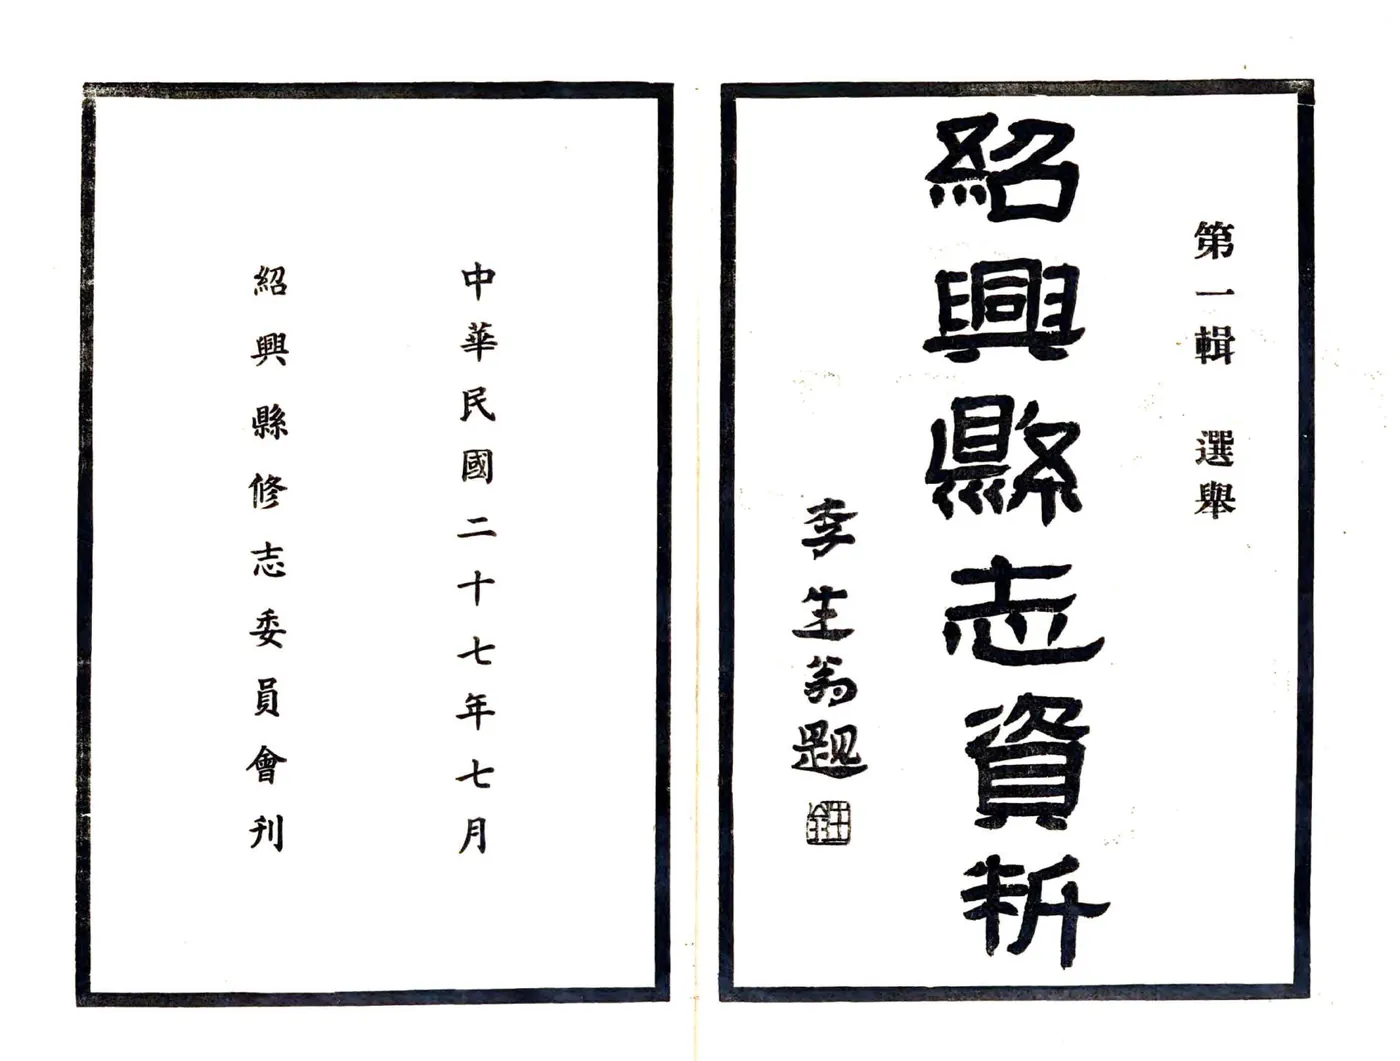 第一輯 選舉
紹興縣志資料
李生翁題
中華民國二十七年七月
紹興縣修志委員會刊